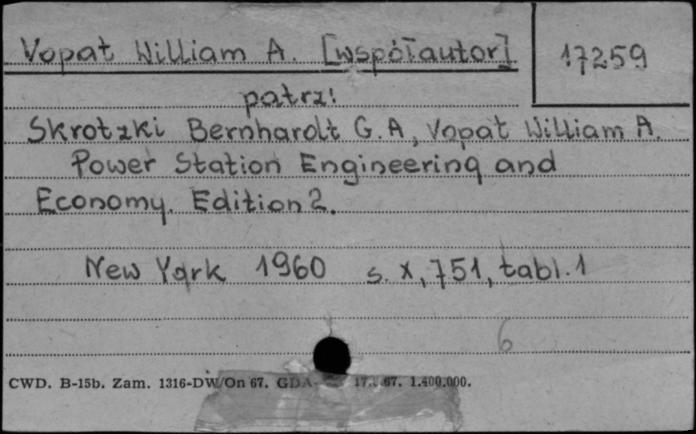 Vopat William A. [współautor] 17259
patrz:
Skrotzki Bernhardt G.A, Vopat William A.
Power Station Engineering and
Economy. Edition 2.
New York 1960 s. X, 751, tabl. 1
6
CWD. B-15b. Zam. 1316-DW/On 67. GDA 67. 1.400.000.